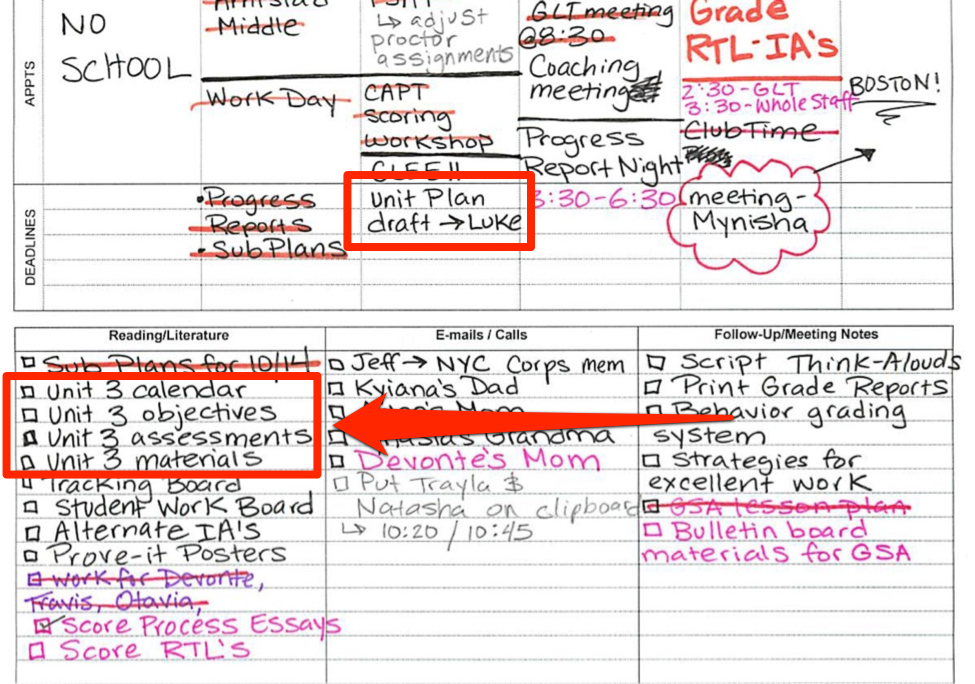 APPTS
NO
SCHOOL
Middle
Work Day
↳ adjust
proctor
assignments
CAPT
scoring
workshop
GLT meeting
@8:30
Coaching
meeting
Progress
Report Night
3:30-6:30
Grade
RTL-IA's
2:30-GLT
3:30-Whole Staff
Club Time
BOSTON!
DEADLINES
• Progress
Reports
• Sub Plans
Unit Plan
draft → Luke
meeting-
Mynisha
Reading/Literature
Sub Plans for 10/14
Unit 3 calendar
Unit 3 objectives
Unit 3 assessments
Unit 3 materials
Tracking Board
Student Work Board
Alternate IA's
Prove-it Posters
Work for Devonte,
Travis, Otavia,
Score Process Essays
Score RTL's
E-mails / Calls
Jeff → NYC Corps mem
Kyiana's Dad
Mom
Grandma
Devonte's Mom
Put Trayla &
Natasha on clipboard
↳ 10:20 / 10:45
Follow-Up/Meeting Notes
Script Think-Alouds
Print Grade Reports
Behavior grading
system
Strategies for
excellent work
GSA lesson plan
Bulletin board
materials for GSA